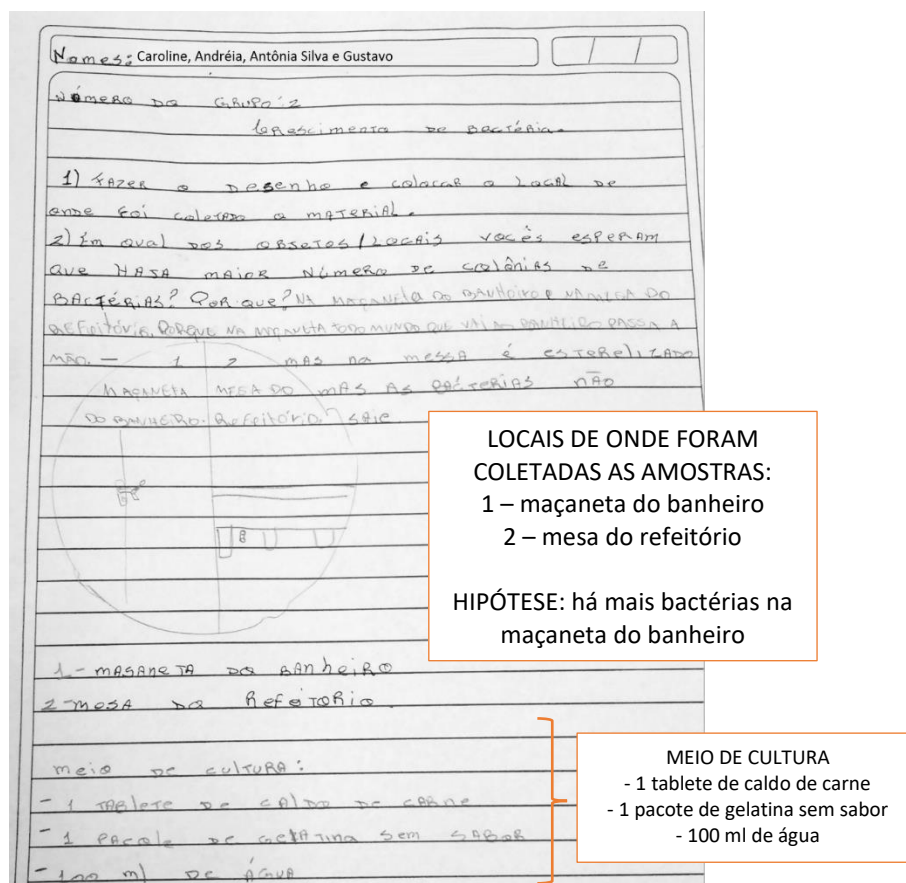 Nomes: Caroline, Andréia, Antônia Silva e Gustavo
Número do GRUPO: 2
Crescimento de Bactéria.
1) Fazer o Desenho e colocar o Local de
onde foi coletado o material.
2) Em qual dos obsetos/Locais vocês esperam
que HASA maior Número de colônias de
BACTÉRIAS? Por que? NA MAÇANETA DO BANHEIRO E NA MESA DO
REFEITÓRIO. PORQUE NA MAÇANETA TODO MUNDO QUE VAI AO BANHEIRO PASSA A
MÃO. — 1 2 mas na messa é esterelizado
MAÇANETA MESA DO mas as bacterias não
DO BANHEIRO. Refeitório. saie
1 - masaneta do banheiro
2 - mesa do Refeitorio.
meio de cultura:
- 1 tablete de caldo de carne
- 1 pacote de gelatina sem sabor
- 100 ml de água
LOCAIS DE ONDE FORAM
COLETADAS AS AMOSTRAS:
1 – maçaneta do banheiro
2 – mesa do refeitório
HIPÓTESE: há mais bactérias na
maçaneta do banheiro
MEIO DE CULTURA
- 1 tablete de caldo de carne
- 1 pacote de gelatina sem sabor
- 100 ml de água